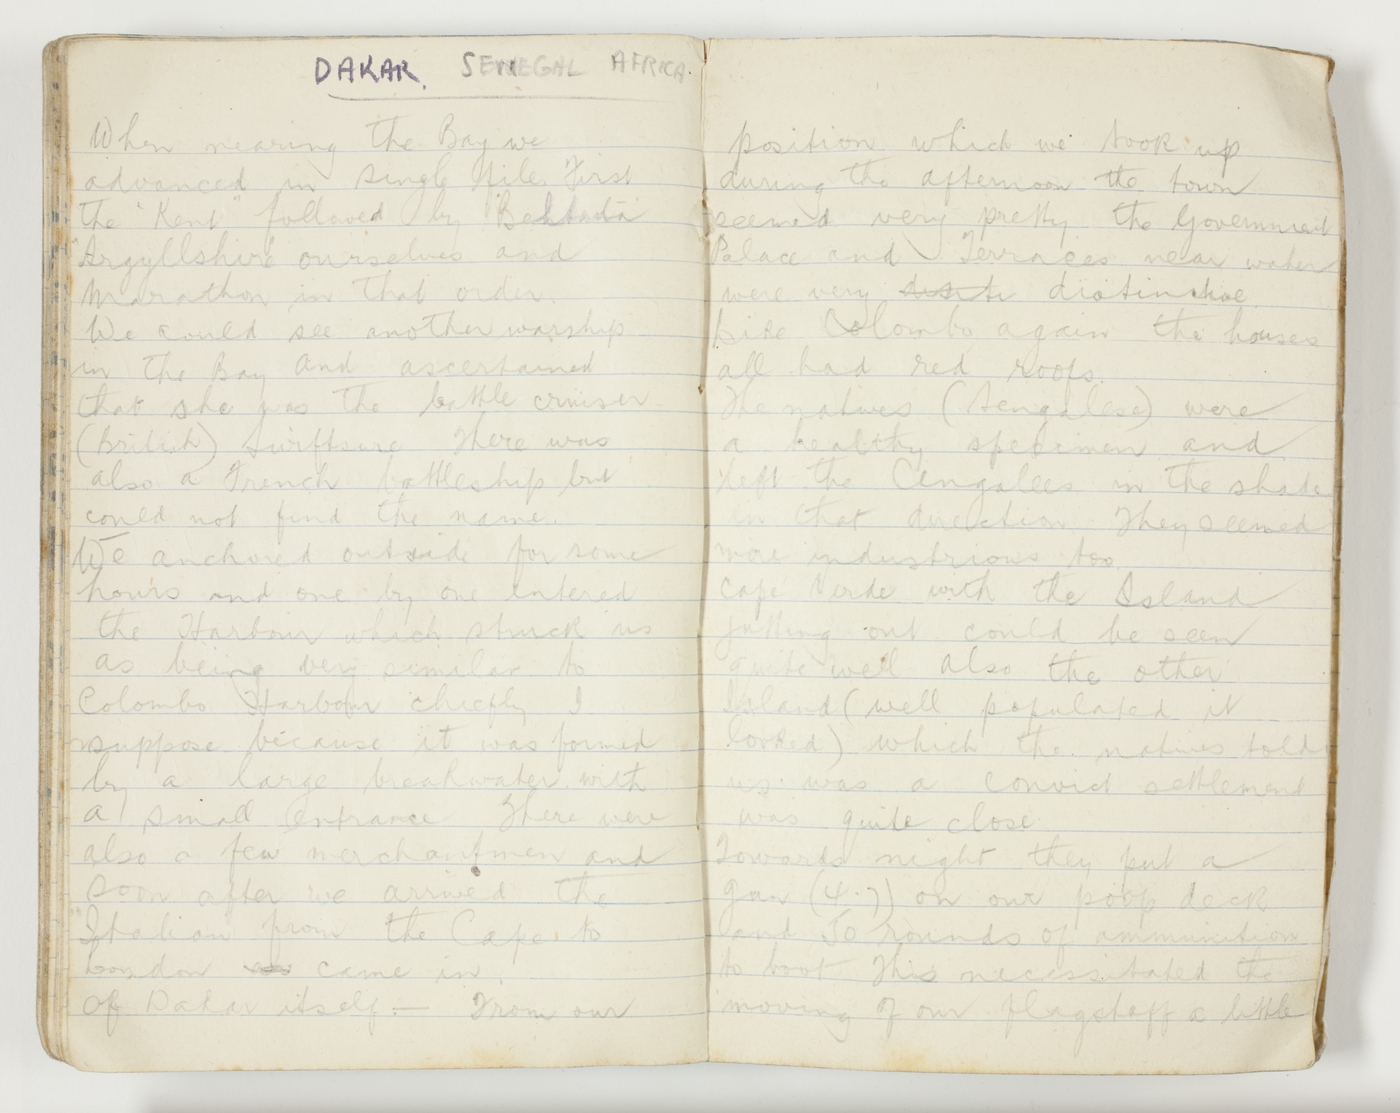 DAKAR. SENEGAL AFRICA.
When nearing the Bay we
advanced in single file. First
the "Kent" followed by
"Argyllshire ourselves and
Marathon in that order.
We could see another warship
in the Bay and ascertained
that she was the battle cruiser
(British) Swiftsure. There was
also a French battleship but
could not find the name.
We anchored outside for some
hours and one by one entered
the Harbour which struck us
as being very similar to
Colombo Harbour chiefly I
suppose because it was formed
by a large breakwater with
a small entrance There were
also a few merchantmen and
soon after we arrived the
from the Cape to
London came in.
Of Dakar itself:— From our
position which we took up
during the afternoon the town
seemed very pretty the Government
Palace and Terraces near water
were very distinctive
like Colombo again the houses
all had red roofs.
The natives (Sengalese) were
a healthy specimen and
left the Cengalees in the shade
in that direction. They seemed
more industrious too.
Cape Verde with the Island
jutting out could be seen
quite well also the other
Island (well populated it
looked) which the natives told
us was a convict settlement
was quite close
Towards night they put a
gun (4.7) on our poop deck
and 50 rounds of ammunition
to boot This necessitated the
moving of our flagstaff a little